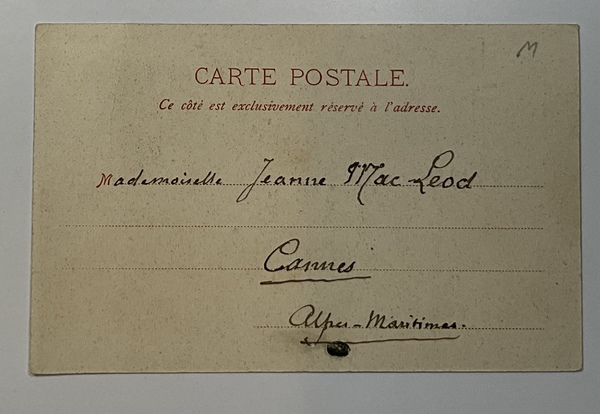 M
CARTE POSTALE.
Ce côté est exclusivement réservé à l'adresse.
Mademoiselle Jeanne Mac-Leod
Cannes
Alpes-Maritimes.